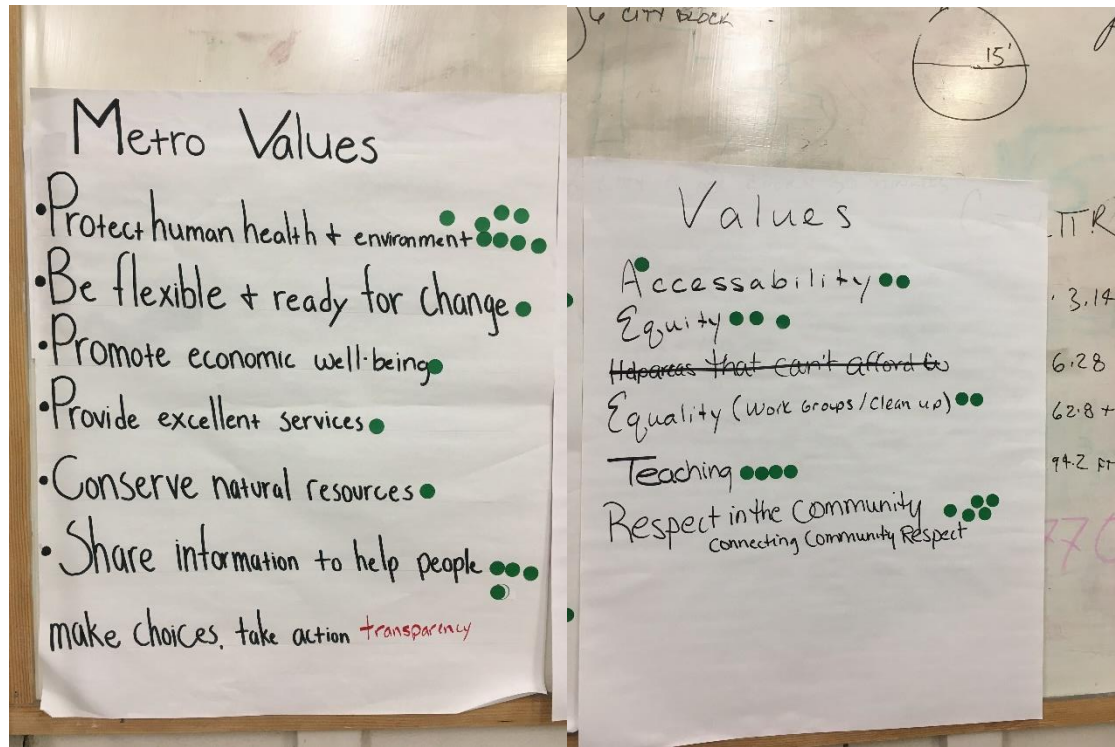 Metro Values
• Protect human health + environment
• Be flexible + ready for change
• Promote economic well-being
• Provide excellent services
• Conserve natural resources
• Share information to help people
make choices, take action transparency
6 CITY BLOCK
15'
Values
Accessability
Equity
that can't afford
Equality (Work Groups/Clean up)
Teaching
Respect in the Community
Connecting Community Respect
3.14
6.28
62.8
94.2 FT